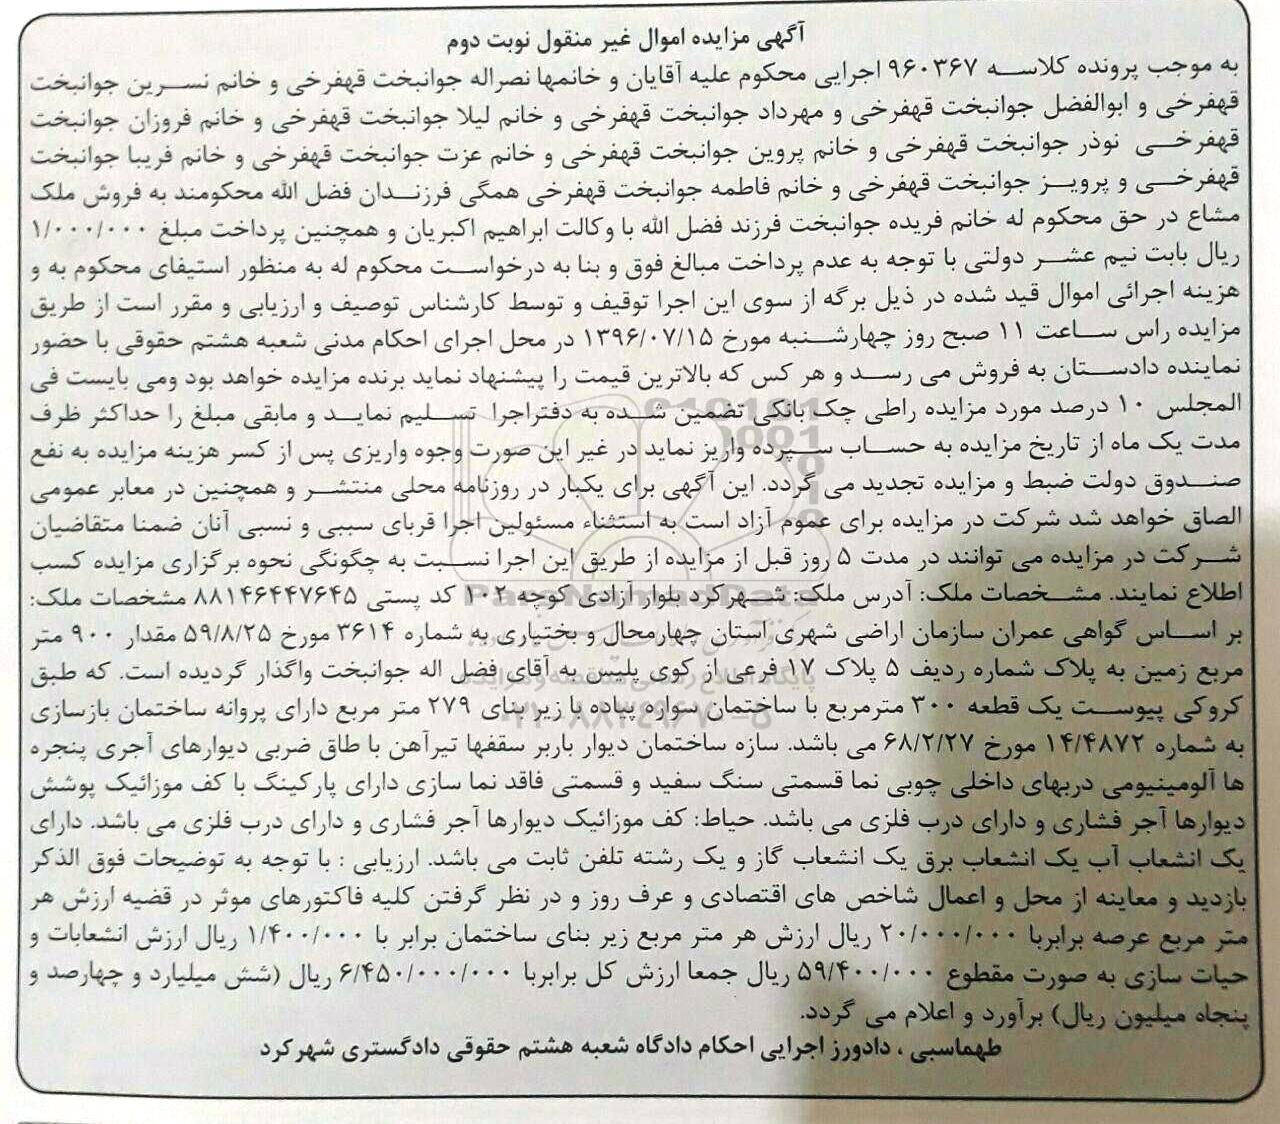 آگهی مزایده اموال غیر منقول نوبت دوم
به موجب پرونده کلاسه ۹۶۰۳۶۷ اجرایی محکوم علیه آقایان و خانمها نصراله جوانبخت قهفرخی و خانم نسرین جوانبخت
قهفرخی و ابوالفضل جوانبخت قهفرخی و مهرداد جوانبخت قهفرخی و خانم لیلا جوانبخت قهفرخی و خانم فروزان جوانبخت
قهفرخی نوذر جوانبخت قهفرخی و خانم پروین جوانبخت قهفرخی و خانم عزت جوانبخت قهفرخی و خانم فریبا جوانبخت
قهفرخی و پرویز جوانبخت قهفرخی و خانم فاطمه جوانبخت قهفرخی همگی فرزندان فضل الله محکومند به فروش ملک
مشاع در حق محکوم له خانم فریده جوانبخت فرزند فضل الله با وکالت ابراهیم اکبریان و همچنین پرداخت مبلغ ۱/۰۰۰/۰۰۰
ریال بابت نیم عشر دولتی با توجه به عدم پرداخت مبالغ فوق و بنا به درخواست محکوم له به منظور استیفای محکوم به و
هزینه اجرائی اموال قید شده در ذیل برگه از سوی این اجرا توقیف و توسط کارشناس توصیف و ارزیابی و مقرر است از طریق
مزایده راس ساعت ۱۱ صبح روز چهارشنبه مورخ ۱۳۹۶/۰۷/۱۵ در محل اجرای احکام مدنی شعبه هشتم حقوقی با حضور
نماینده دادستان به فروش می رسد و هر کس که بالاترین قیمت را پیشنهاد نماید برنده مزایده خواهد بود ومی بایست فی
المجلس ۱۰ درصد مورد مزایده راطی چک بانکی تضمین شده به دفتراجرا تسلیم نماید و مابقی مبلغ را حداکثر ظرف
مدت یک ماه از تاریخ مزایده به حساب سپرده واریز نماید در غیر این صورت وجوه واریزی پس از کسر هزینه مزایده به نفع
صندوق دولت ضبط و مزایده تجدید می گردد. این آگهی برای یکبار در روزنامه محلی منتشر و همچنین در معابر عمومی
الصاق خواهد شد شرکت در مزایده برای عموم آزاد است به استثناء مسئولین اجرا قربای سببی و نسبی آنان ضمنا متقاضیان
شرکت در مزایده می توانند در مدت ۵ روز قبل از مزایده از طریق این اجرا نسبت به چگونگی نحوه برگزاری مزایده کسب
اطلاع نمایند. مشخصات ملک: آدرس ملک: شهرکرد بلوار آزادی کوچه ۱۰۲ کد پستی ۸۸۱۴۶۴۴۷۶۴۵ مشخصات ملک:
بر اساس گواهی عمران سازمان اراضی شهری استان چهارمحال و بختیاری به شماره ۳۶۱۴ مورخ ۵۹/۸/۲۵ مقدار ۹۰۰ متر
مربع زمین به پلاک شماره ردیف ۵ پلاک ۱۷ فرعی از کوی پلیس به آقای فضل اله جوانبخت واگذار گردیده است. که طبق
کروکی پیوست یک قطعه ۳۰۰ مترمربع با ساختمان سواره پیاده با زیر بنای ۲۷۹ متر مربع دارای پروانه ساختمان بازسازی
به شماره ۱۴/۴۸۷۲ مورخ ۶۸/۲/۲۷ می باشد. سازه ساختمان دیوار باربر سقفها تیرآهن با طاق ضربی دیوارهای آجری پنجره
ها آلومینیومی دربهای داخلی چوبی نما قسمتی سنگ سفید و قسمتی فاقد نما سازی دارای پارکینگ با کف موزائیک پوشش
دیوارها آجر فشاری و دارای درب فلزی می باشد. حیاط: کف موزائیک دیوارها آجر فشاری و دارای درب فلزی می باشد. دارای
یک انشعاب آب یک انشعاب برق یک انشعاب گاز و یک رشته تلفن ثابت می باشد. ارزیابی : با توجه به توضیحات فوق الذکر
بازدید و معاینه از محل و اعمال شاخص های اقتصادی و عرف روز و در نظر گرفتن کلیه فاکتورهای موثر در قضیه ارزش هر
متر مربع عرصه برابربا ۲۰/۰۰۰/۰۰۰ ریال ارزش هر متر مربع زیر بنای ساختمان برابر با ۱/۴۰۰/۰۰۰ ریال ارزش انشعابات و
حیات سازی به صورت مقطوع ۵۹/۴۰۰/۰۰۰ ریال جمعا ارزش کل برابربا ۶/۴۵۰/۰۰۰/۰۰۰ ریال (شش میلیارد و چهارصد و
پنجاه میلیون ریال) برآورد و اعلام می گردد.
طهماسبی ، دادورز اجرایی احکام دادگاه شعبه هشتم حقوقی دادگستری شهرکرد